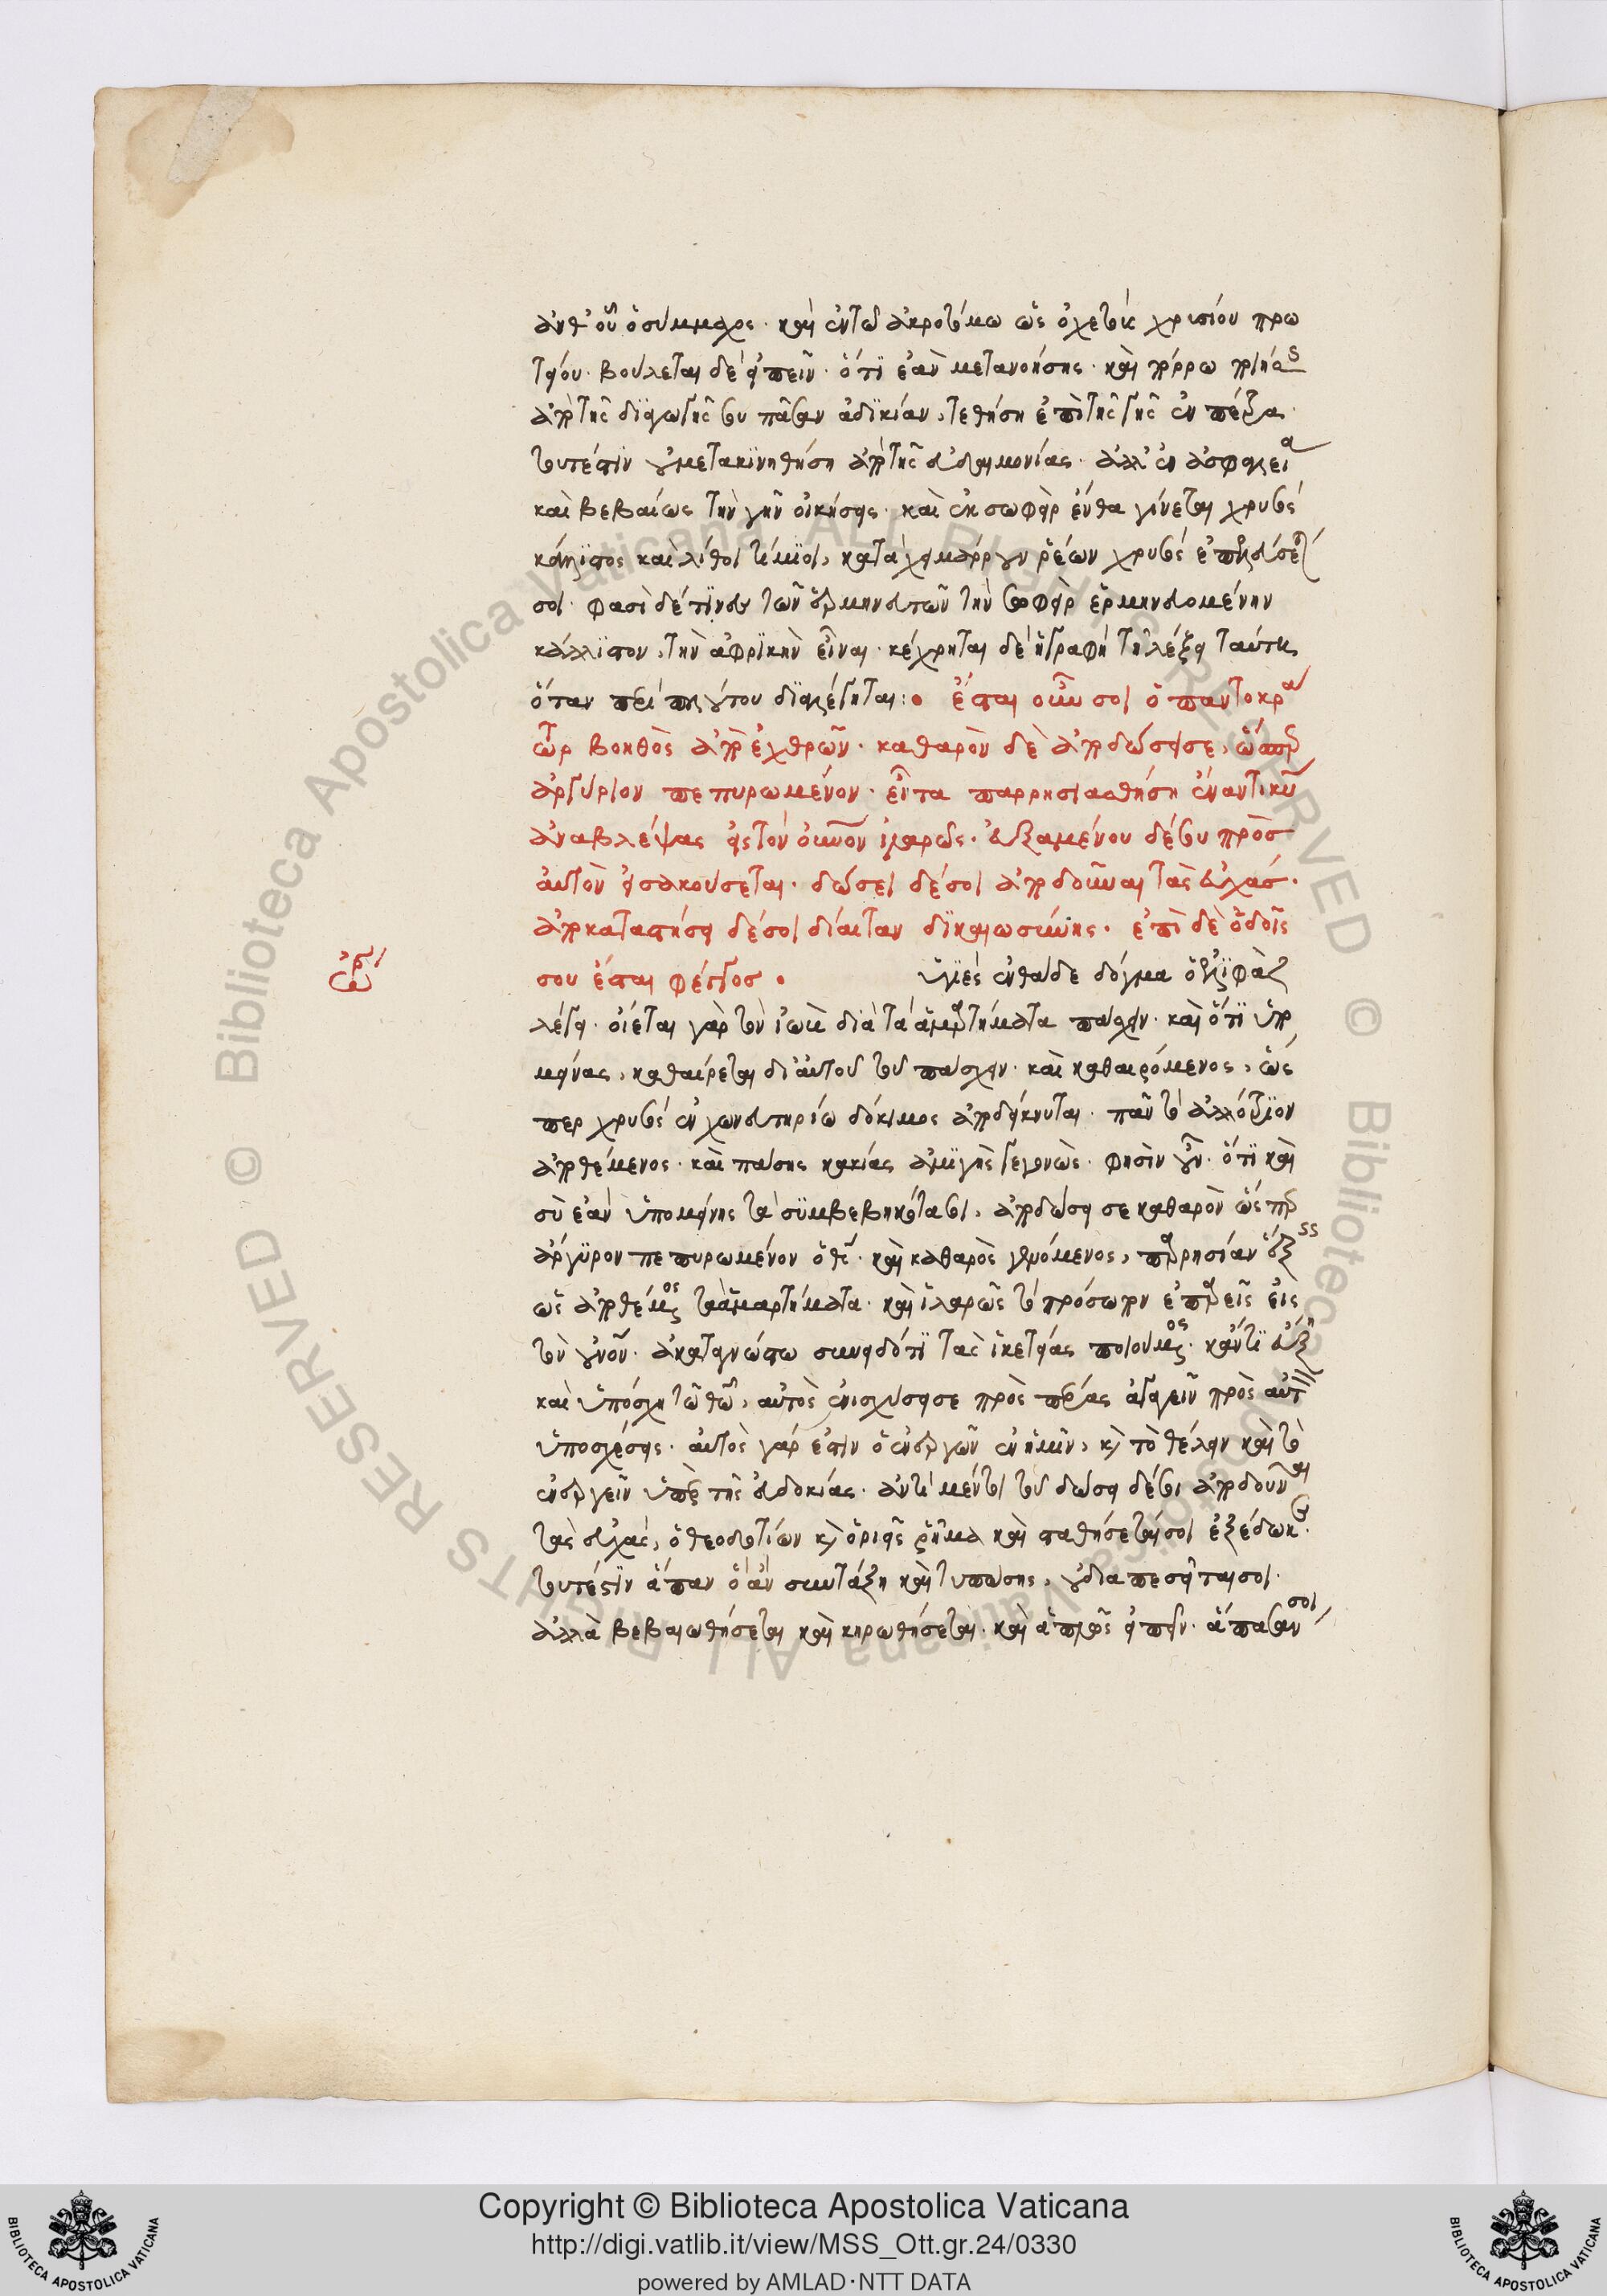 ἀνθ' οὗ ὁ σύμμαχος· καὶ ἐν τῷ ἀκροτόμω ὡς ὀχετοὶ χρυσίου πρω
τείου· βούλεται δὲ εἰπεῖν· ὅτι ἐὰν μετανοήσης· καὶ πόρρω ποιήσ
ἀπὸ τῆς διαγωγῆς σου πᾶσαν ἀδικίαν, τεθήση ἐπὶ τῆς γῆς ἐν πέτρα·
τουτέστιν οὐ μετακινηθήση ἀπὸ τῆς εὐδαιμονίας· ἀλλ' ἐν ἀσφαλεία
καὶ βεβαίως τὴν γῆν οἰκήσεις· καὶ ἐκ σωφὰρ ἔνθα γίνεται χρυσὸς
κάλλιστος καὶ λίθοι τίμιοι, κατὰ χειμάρρουν ῥέων χρυσὸς ἐπεισελεύσεταί
σοι· φασὶ δέ τινες τῶν ἑρμηνευτῶν τὴν σωφὰρ ἑρμηνευομένην
κάλλιστον, τὴν ἀφρικὴν εἶναι· κέχρηται δὲ ἡ γραφὴ τῇ λέξει ταύτη,
ὅταν περὶ πλούτου διαλέγηται: ἔσται οὖν σοι ὁ παντοκρά
τωρ βοηθὸς ἀπὸ ἐχθρῶν· καθαρὸν δὲ ἀποδώσει σε, ὥσπερ
ἀργύριον πεπυρωμένον· εἶτα παρρησιασθήση ἐναντι κυ
ἀναβλέψας εἰς τὸν οὐνον ἱλαρῶς· εὐξαμένου δέ σου πρὸσ
αὐτὸν εἰσακούσεται· δώσει δέ σοι ἀποδοῦναι τὰς εὐχάσ·
ἀποκαταστήσει δέ σοι δίαιταν δικαιοσύνης· ἐπὶ δὲ ὁδοῖς
σου ἔσται φέγγοσ· ὑγιὲς ἐνθάδε δόγμα ὁ ἐλιφὰζ
λέγει· οἴεται γὰρ τὸν ἰὼβ διὰ τὰ ἁμαρτήματα πάσχειν· καὶ ὅτι ὑπο
μείνας, καθαίρεται δι' αὐτοῦ τοῦ πάσχειν· καὶ καθαιρόμενος, ὥς
περ χρυσὸς ἐν χωνευτηρίω δόκιμος ἀποδείκνυται· πᾶν τὸ ἀλλότριον
ἀποθέμενος· καὶ πάσης κακίας ἀμιγὴς γεγονὼς· φησὶν οὖν· ὅτι καὶ
σὺ ἐὰν ὑπομείνης τὰ συμβεβηκότα σοι, ἀποδώσει σε καθαρὸν ὥς περ
ἄργυρον πεπυρωμένον ὁ θς· καὶ καθαρὸς γενόμενος, παρρησίαν ἕξεις
ὡς ἀποθέμενος τὰ ἁμαρτήματα· καὶ ἱλαρῶς τὸ πρόσωπον ἐπαρεῖς εἰς
τὸν οὐνον· ἀκαταγνώστω συνειδότι τὰς ἱκετείας ποιούμενος· κἄν τι εὔξη
καὶ ὑπόσχη τῷ θω, αὐτὸς ἐνισχύσει σε πρὸς πέρας ἀγαγεῖν πρὸς αὐτὸν
ὑποσχέσεις· αὐτὸς γάρ ἐστιν ὁ ἐνεργῶν ἐν ἡμῖν, καὶ τὸ θέλειν καὶ τὸ
ἐνεργεῖν ὑπὲρ τῆς εὐδοκίας· ἀντὶ μέντοι τοῦ δώσει δέ σοι ἀποδοῦναι
τὰς εὐχὰς, ὁ θεοδοτίων καὶ ὁριεῖς ῥῆμα καὶ σταθήσεταί σοι ἐξέδωκε·
τουτέστιν ἅπαν ὃ ἂν συντάξη καὶ τυπώσης, οὐ διαπεσεῖταί σοι·
ἀλλὰ βεβαιωθήσεται καὶ κυρωθήσεται· καὶ ἁπλῶς εἰπεῖν· ἅπασάν σοι
Copyright © Biblioteca Apostolica Vaticana
http://digi.vatlib.it/view/MSS_Ott.gr.24/0330
powered by AMLAD·NTT DATA